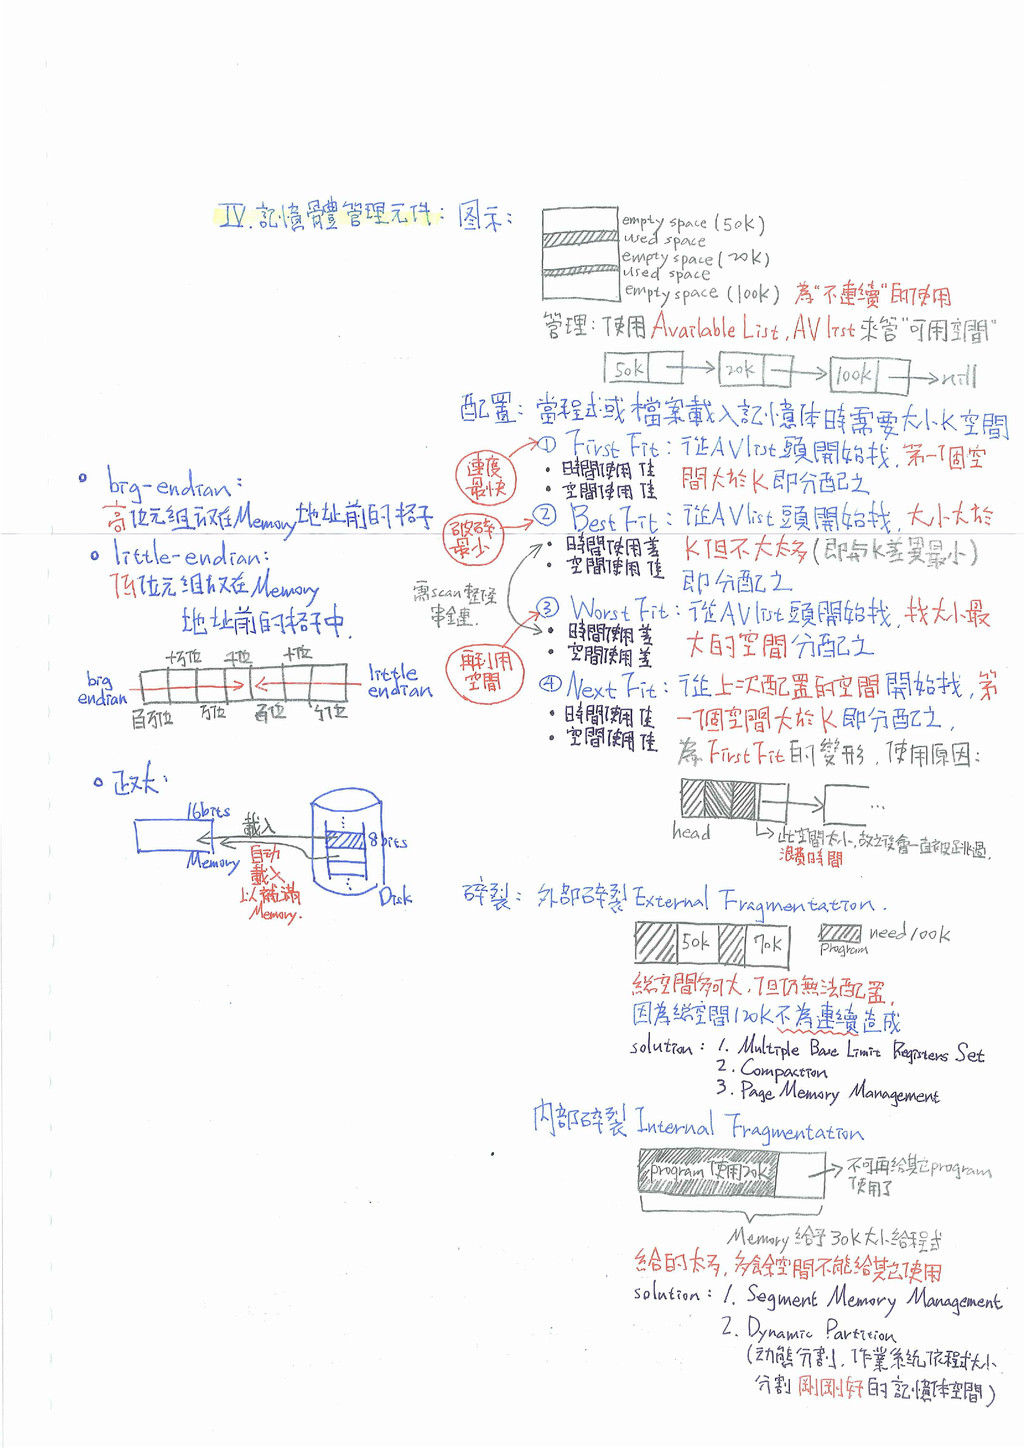 IV. 記憶體管理元件: 图示:
empty space (50K)
used space
empty space (20K)
used space
empty space (100K) 為"不連續"的使用
管理: 使用 Available List, AV list 來管"可用空間"
50K 20K 100K null
配置: 當程式或檔案載入記憶体時需要大小K空間
速度最快
① First Fit: 從AV list 頭開始找, 第一個空
• 時間使用 佳
間大於K即分配之
• 空間使用 佳
破碎最小
② Best Fit: 從AV list 頭開始找, 大小大於
• 時間使用 差
K但不大太多(即與K差異最小)
• 空間使用 佳
即分配之
需scan整條串鏈
③ Worst Fit: 從AV list 頭開始找, 找大小最
• 時間使用 差
大的空間分配之
• 空間使用 差
再利用空間
④ Next Fit: 從上次配置的空間開始找, 第
• 時間使用 佳
一個空間大於K即分配之,
• 空間使用 佳
為 First Fit 的變形, 使用原因:
head
...
此空間太小, 故之後會一直被跳過.
浪費時間
big-endian:
高位元組放在Memory地址前的格子
little-endian:
低位元組放在Memory
地址前的格子中.
十万位 千位 十位
big endian
little endian
百万位 万位 百位 个位
16bits
載入
8bits
Memory
自动載入以填滿Memory.
Disk
碎裂: 外部碎裂 External Fragmentation.
50K 70K
need 100K
program
總空間夠大, 但仍無法配置,
因為總空間120K不為連續造成
solution: 1. Multiple Base Limit Registers Set
2. Compaction
3. Page Memory Management
內部碎裂 Internal Fragmentation
program 使用20K
不可再給其它program
使用了
Memory 給予 30K大小給程式
給的太多, 多餘空間不能給其它使用
solution: 1. Segment Memory Management
2. Dynamic Partition
(动態分割, 作業系統依程式大小
分割剛剛好的記憶体空間)